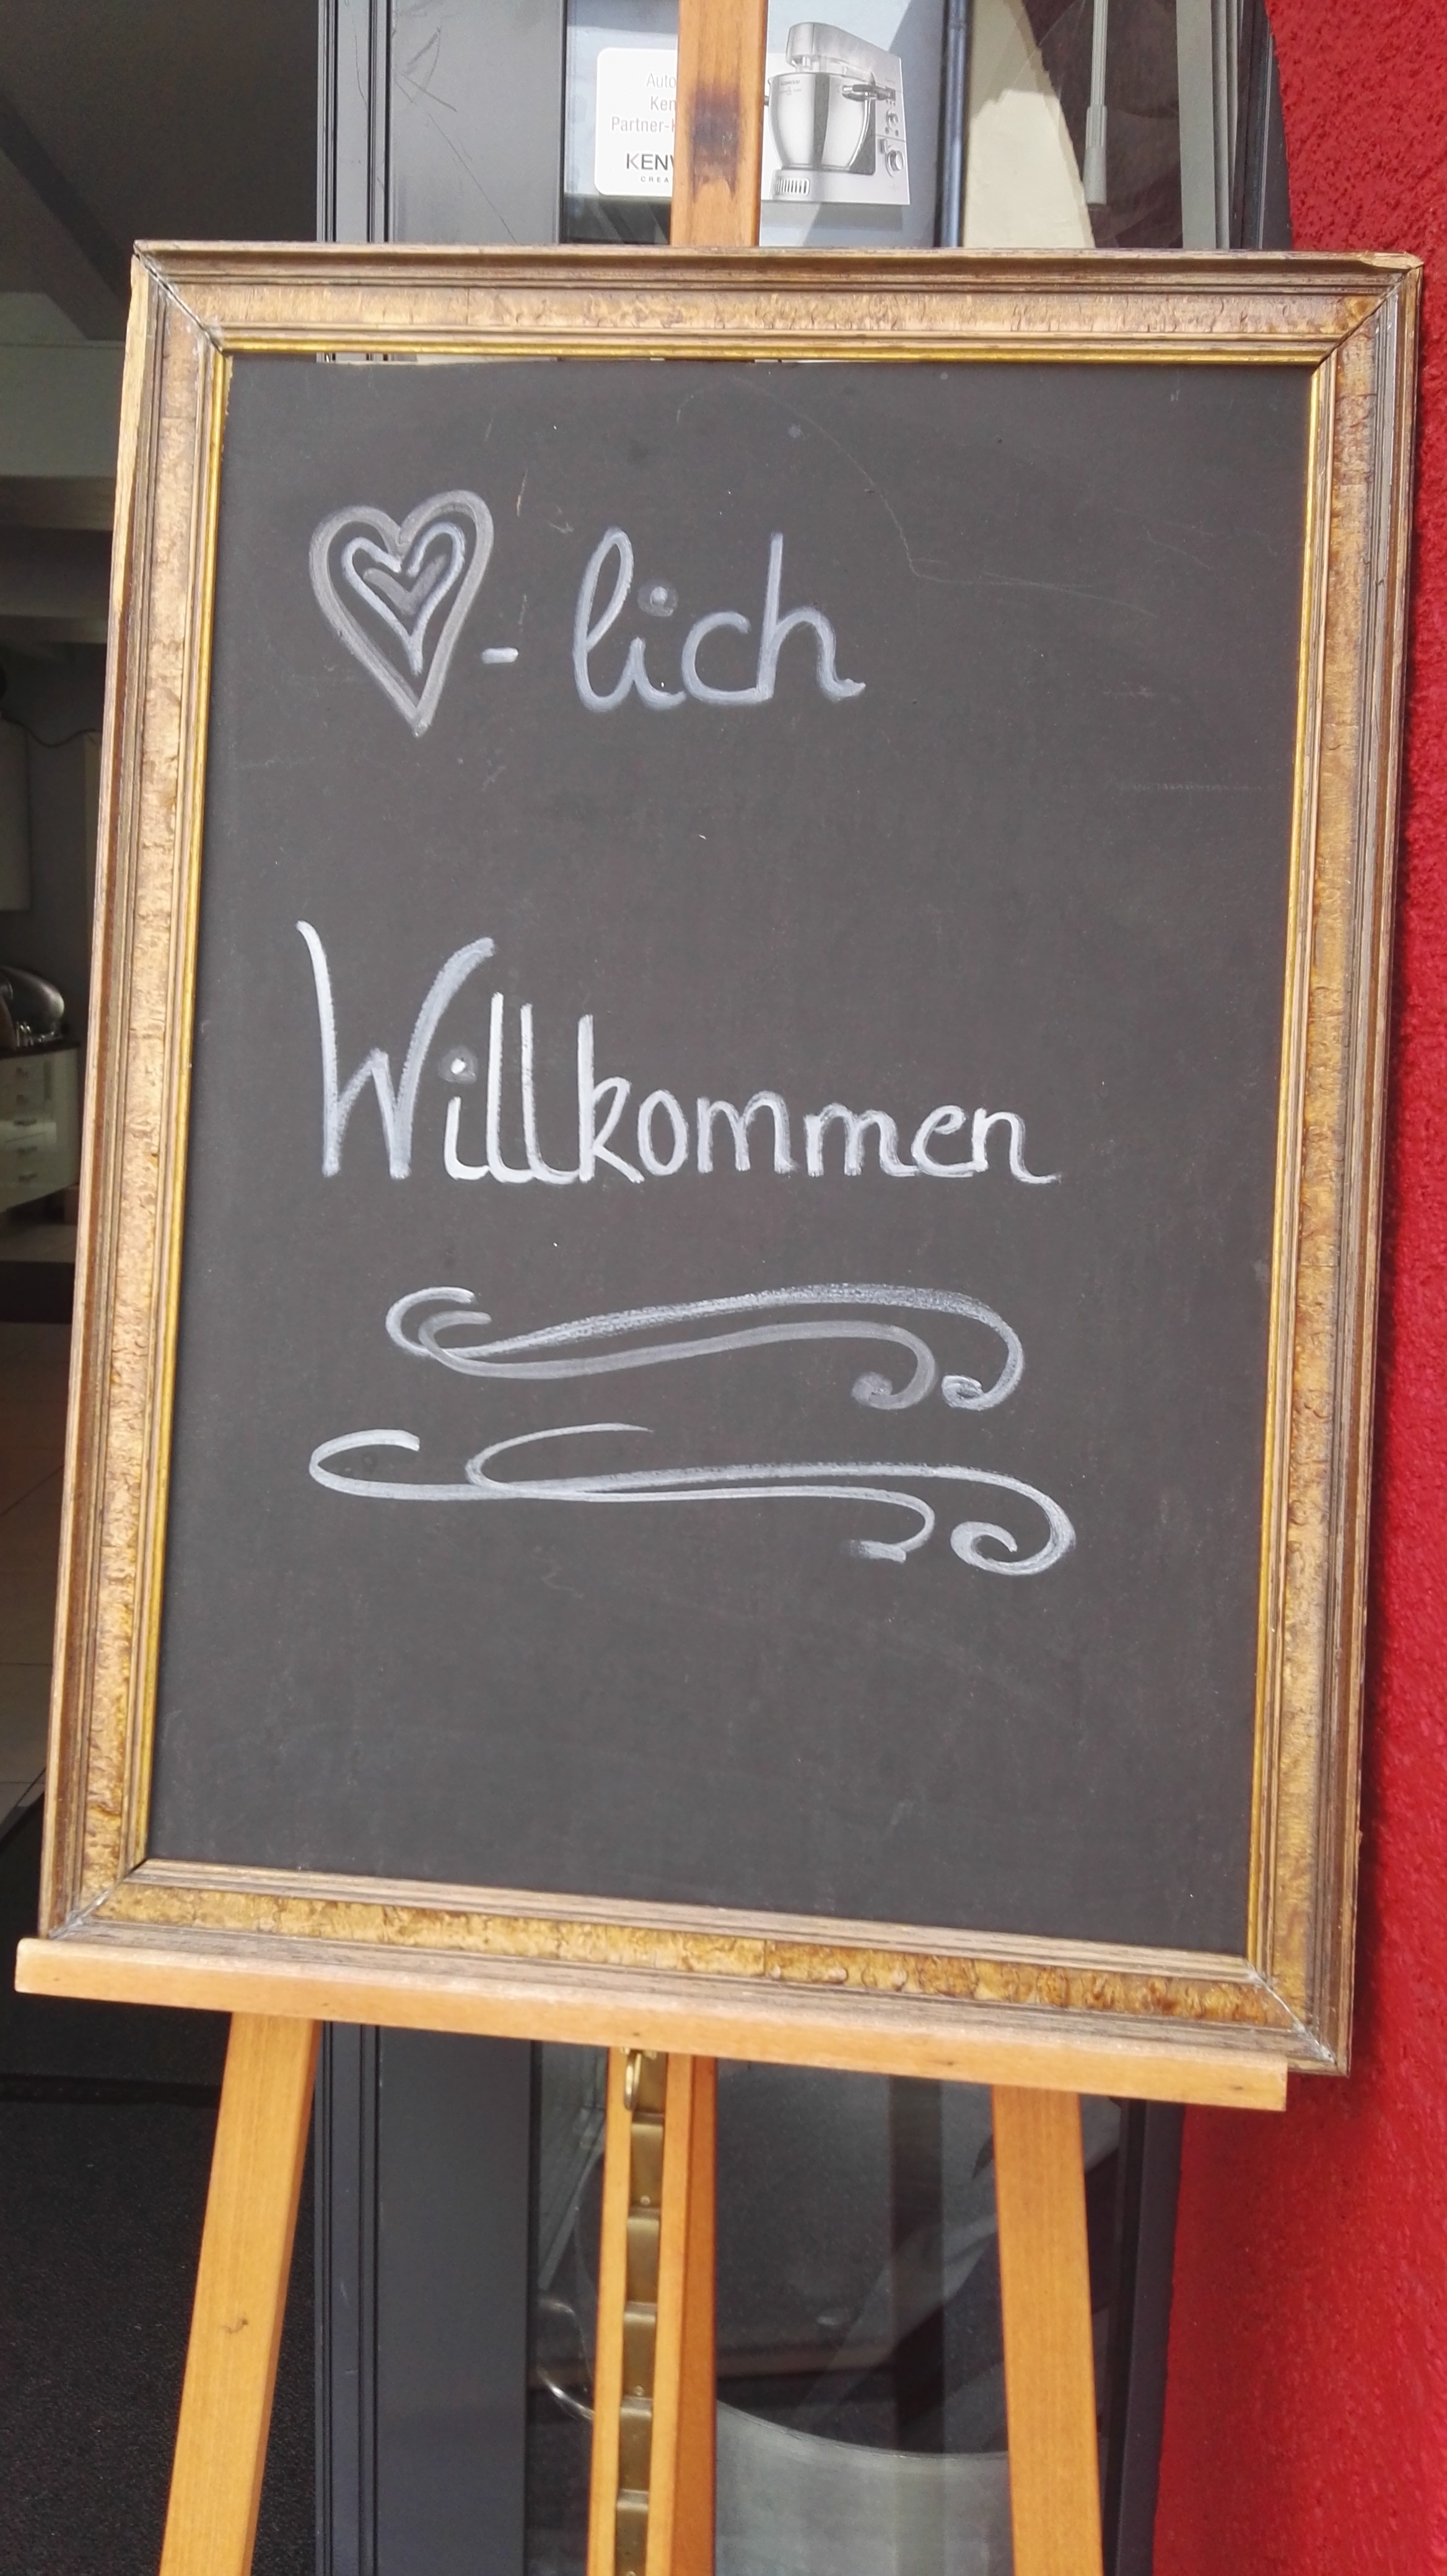 Auto
Ken
Partner-K
KENW
CREA
♡-lich
Willkommen